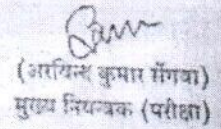 (अरविन्द कुमार सेंगवा)
मुख्य नियन्त्रक (परीक्षा)